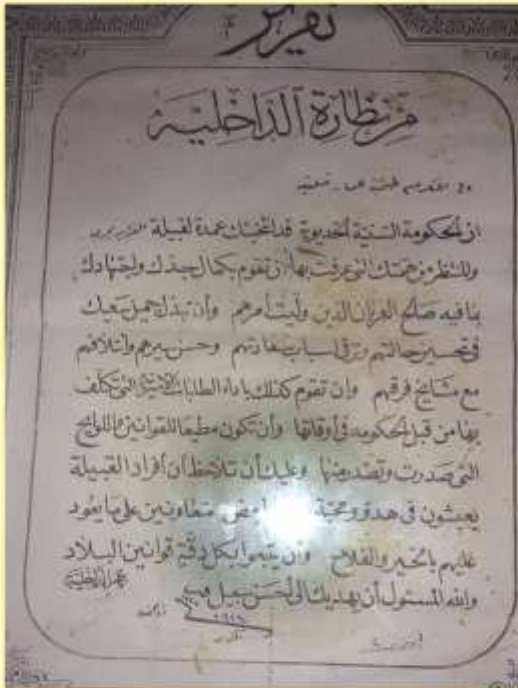 تقرير
من نظارة الداخلية
ان الحكومة السنية الخديوية قد انتخبتك عمدة لقبيلة
وللنظر من همتك التي عرفت بها ان تقوم بكمال جدك واجتهادك
بما فيه صالح العربان الذين وليت أمرهم وأن تبذل جميل سعيك
في تحسين حالتهم وترقى اسباب سعادتهم وحسن سيرهم وائتلافهم
مع مشايخ فرقهم وان تقوم كذلك باداء الطلبات التي تكلف
بها من قبل الحكومه في أوقاتها وأن تكون مطيعا للقوانين واللوايح
التى صدرت وتصدر منها وعليك أن تلاحظ أن أفراد القبيلة
يعيشون في هدو ومحبة متعاونين على ما يعود
عليهم بالخير والفلاح وأن يتبعوا بكل دقة قوانين البلاد
والله المسئول أن يهديك الى أحسن سبيل